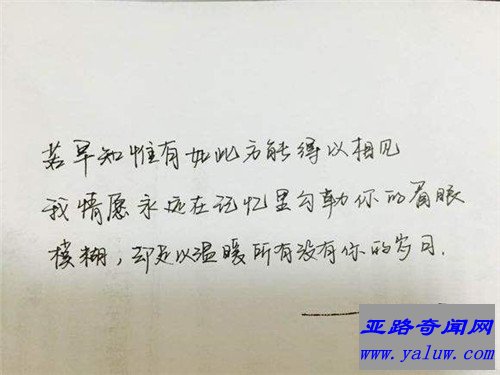 若早知惟有如此方能得以相见
我情愿永远在记忆里勾勒你的眉眼
模糊，却足以温暖所有没有你的岁月.
亚路奇闻网
www.yaluw.com